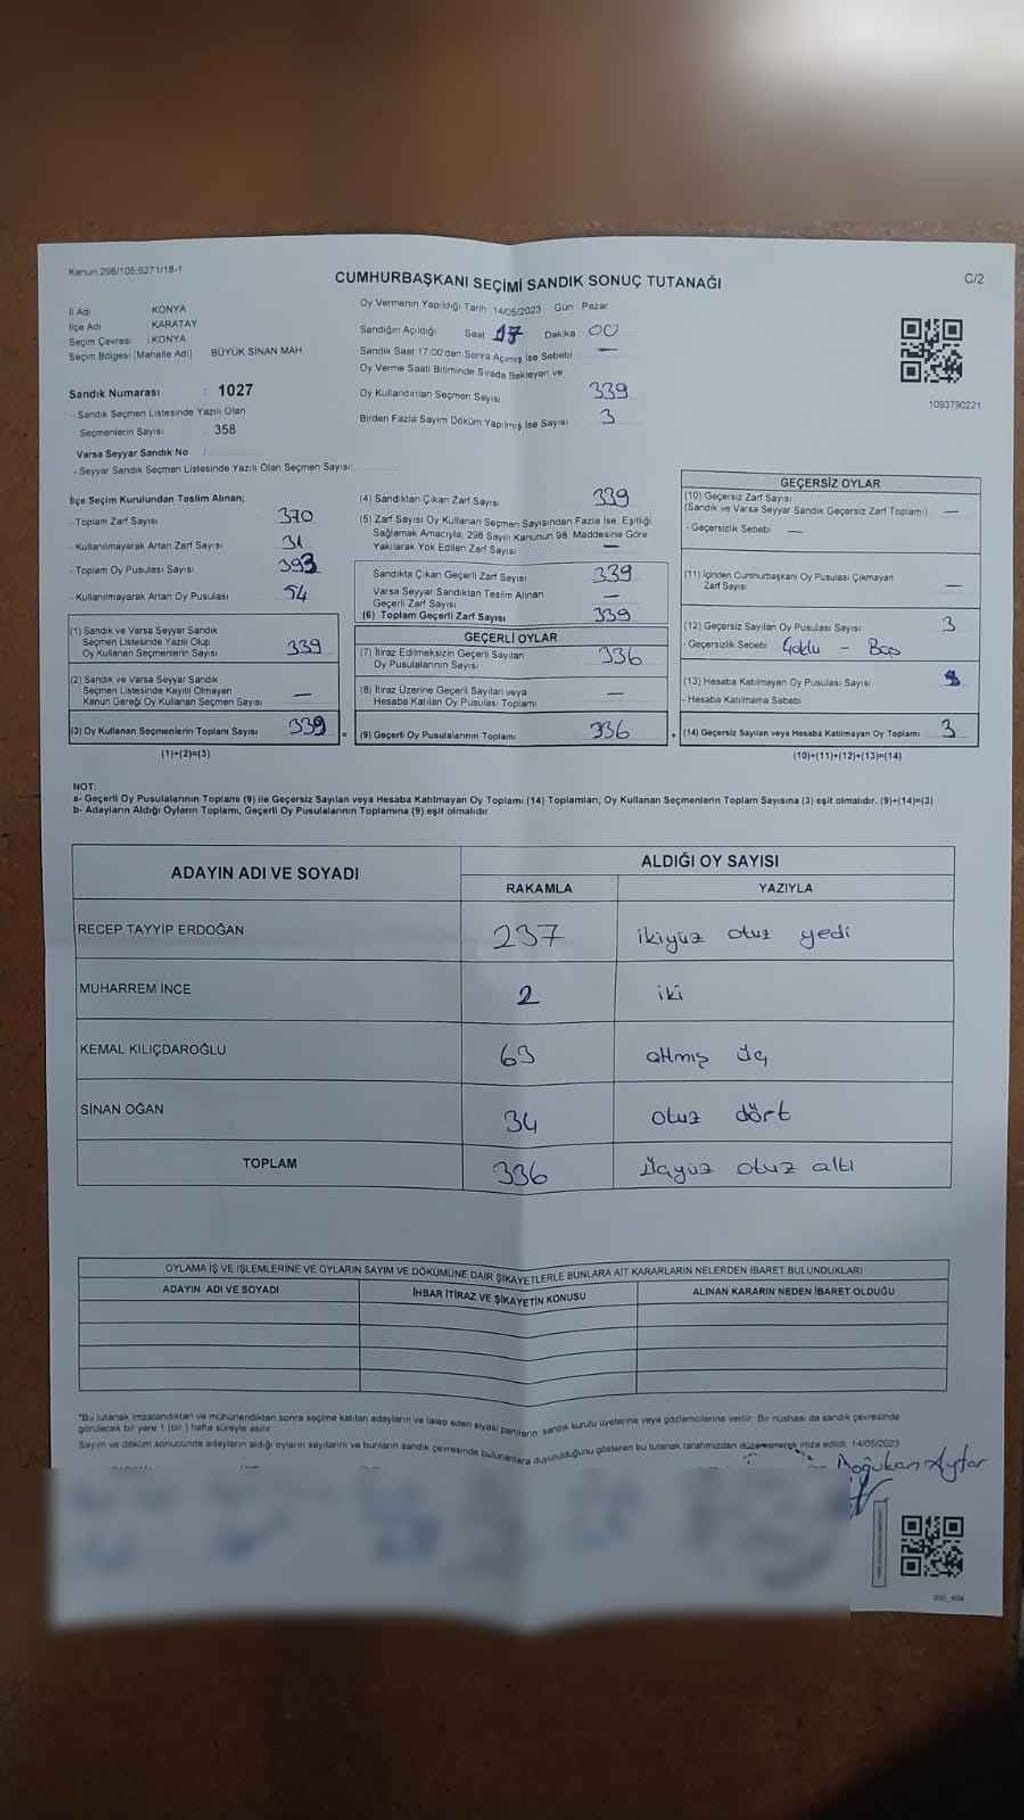 Kanun:298/105;6271/18-1
CUMHURBAŞKANI SEÇİMİ SANDIK SONUÇ TUTANAĞI
C/2
İl Adı KONYA
İlçe Adı KARATAY
Seçim Çevresi : KONYA
Seçim Bölgesi (Mahalle Adı) BÜYÜK SİNAN MAH.
Sandık Numarası : 1027
- Sandık Seçmen Listesinde Yazılı Olan
Seçmenlerin Sayısı 358
Varsa Seyyar Sandık No :
- Seyyar Sandık Seçmen Listesinde Yazılı Olan Seçmen Sayısı:
Oy Vermenin Yapıldığı Tarih :14/05/2023 Gün Pazar
Sandığın Açıldığı Saat 17 Dakika 00
Sandık Saat 17:00'den Sonra Açılmış İse Sebebi —
Oy Verme Saati Bitiminde Sırada Bekleyen ve
Oy Kullandırılan Seçmen Sayısı 339
Birden Fazla Sayım Döküm Yapılmış İse Sayısı 3
1093790221
İlçe Seçim Kurulundan Teslim Alınan;
- Toplam Zarf Sayısı 370
- Kullanılmayarak Artan Zarf Sayısı 31
- Toplam Oy Pusulası Sayısı 393
- Kullanılmayarak Artan Oy Pusulası 54
(1) Sandık ve Varsa Seyyar Sandık
Seçmen Listesinde Yazılı Olup
Oy Kullanan Seçmenlerin Sayısı 339
(2) Sandık ve Varsa Seyyar Sandık
Seçmen Listesinde Kayıtlı Olmayan
Kanun Gereği Oy Kullanan Seçmen Sayısı —
(3) Oy Kullanan Seçmenlerin Toplam Sayısı 339
(1)+(2)=(3)
(4) Sandıktan Çıkan Zarf Sayısı 339
(5) Zarf Sayısı Oy Kullanan Seçmen Sayısından Fazla İse, Eşitliği
Sağlamak Amacıyla, 298 Sayılı Kanunun 98. Maddesine Göre
Yakılarak Yok Edilen Zarf Sayısı —
Sandıkta Çıkan Geçerli Zarf Sayısı 339
Varsa Seyyar Sandıktan Teslim Alınan
Geçerli Zarf Sayısı —
(6) Toplam Geçerli Zarf Sayısı 339
GEÇERLİ OYLAR
(7) İtiraz Edilmeksizin Geçerli Sayılan
Oy Pusulalarının Sayısı 336
(8) İtiraz Üzerine Geçerli Sayılan veya
Hesaba Katılan Oy Pusulası Toplamı —
= (9) Geçerli Oy Pusulalarının Toplamı 336
GEÇERSİZ OYLAR
(10) Geçersiz Zarf Sayısı
(Sandık ve Varsa Seyyar Sandık Geçersiz Zarf Toplamı) —
- Geçersizlik Sebebi —
(11) İçinden Cumhurbaşkanı Oy Pusulası Çıkmayan
Zarf Sayısı —
(12) Geçersiz Sayılan Oy Pusulası Sayısı 3
- Geçersizlik Sebebi Çoklu - Boş
(13) Hesaba Katılmayan Oy Pusulası Sayısı
- Hesaba Katılmama Sebebi
+ (14) Geçersiz Sayılan veya Hesaba Katılmayan Oy Toplamı 3
(10)+(11)+(12)+(13)=(14)
NOT:
a- Geçerli Oy Pusulalarının Toplamı (9) ile Geçersiz Sayılan veya Hesaba Katılmayan Oy Toplamı (14) Toplamları, Oy Kullanan Seçmenlerin Toplam Sayısına (3) eşit olmalıdır. (9)+(14)=(3)
b- Adayların Aldığı Oyların Toplamı, Geçerli Oy Pusulalarının Toplamına (9) eşit olmalıdır
ADAYIN ADI VE SOYADI ALDIĞI OY SAYISI
RAKAMLA YAZIYLA
RECEP TAYYİP ERDOĞAN 237 ikiyüz otuz yedi
MUHARREM İNCE 2 iki
KEMAL KILIÇDAROĞLU 63 altmış üç
SİNAN OĞAN 34 otuz dört
TOPLAM 336 üçyüz otuz altı
OYLAMA İŞ VE İŞLEMLERİNE VE OYLARIN SAYIM VE DÖKÜMÜNE DAİR ŞİKAYETLERLE BUNLARA AİT KARARLARIN NELERDEN İBARET BULUNDUKLARI
ADAYIN ADI VE SOYADI İHBAR İTİRAZ VE ŞİKAYETİN KONUSU ALINAN KARARIN NEDEN İBARET OLDUĞU
*Bu tutanak imzalandıktan ve mühürlendikten sonra seçime katılan adayların ve talep eden siyasi partilerin sandık kurulu üyelerine veya gözlemcilerine verilir. Bir nüshası da sandık çevresinde
görülecek bir yere 1 (bir) hafta süreyle asılır.
Sayım ve döküm sonucunda adayların aldığı oyların sayılarını ve bunların sandık çevresinde bulunanlara duyurulduğunu gösteren bu tutanak tarafımızdan düzenlenerek imza edildi. 14/05/2023
Doğukan Aytar